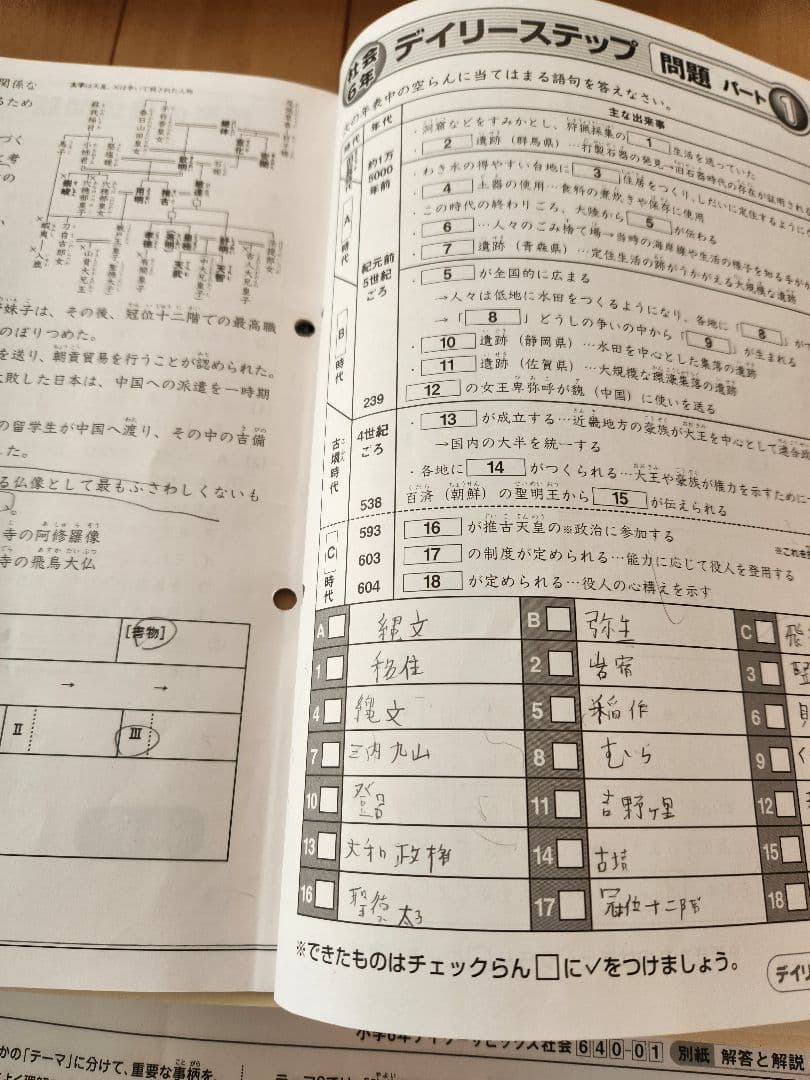 関係な
太字は天皇、×は争いで殺された人物
るため
づく
て考
の
妹子は、その後、冠位十二階での最高職
のぼりつめた。
を送り、朝貢貿易を行うことが認められた。
敗した日本は、中国への派遣を一時期
の留学生が中国へ渡り、その中の吉備
した。
る仏像として最もふさわしくないも
。
寺の阿修羅像
寺の飛鳥大仏
[書物]
→ →
Ⅱ Ⅲ
社会6年 デイリーステップ 問題 パート1
次の年表中の空らんに当てはまる語句を答えなさい。
時代 年代 主な出来事
・洞窟などをすみかとし、狩猟採集の 1 生活を送っていた
・ 2 遺跡(群馬県)…打製石器の発見→旧石器時代の存在が証明される
約1万6000年前
わき水の得やすい台地に 3 住居をつくり、しだいに定住するように
・ 4 土器の使用…食料の煮炊きや保存に使用
A 時代
・この時代の終わりごろ、大陸から 5 が伝わる
・ 6 …人々のごみ捨て場→当時の海岸線や生活の様子を知る手が
・ 7 遺跡(青森県)…定住生活の跡がうかがえる大規模な遺跡
紀元前5世紀ごろ
・ 5 が全国的に広まる
→人々は低地に水田をつくるようになり、各地に「 8 」が
→「 8 」どうしの争いの中から「 9 」が生まれる
B 時代
・ 10 遺跡(静岡県)…水田を中心とした集落の遺跡
・ 11 遺跡(佐賀県)…大規模な環濠集落の遺跡
239 12 の女王卑弥呼が魏(中国)に使いを送る
古墳時代
4世紀ごろ
・ 13 が成立する…近畿地方の豪族が大王を中心として連合政
→国内の大半を統一する
・各地に 14 がつくられる…大王や豪族が権力を示すために
538 百済(朝鮮)の聖明王から 15 が伝えられる
C 時代
593 16 が推古天皇の※政治に参加する
※これを
603 17 の制度が定められる…能力に応じて役人を登用する
604 18 が定められる…役人の心構えを示す
A 縄文 B 弥生 C 飛
1 移住 2 岩宿 3 竪
4 縄文 5 稲作 6 貝
7 三内丸山 8 むら 9 く
10 登呂 11 吉野ヶ里 12
13 大和政権 14 古墳 15
16 聖徳太子 17 冠位十二階 18
※できたものはチェックらん□に✓をつけましょう。
デイリ
小学6年デイリーサピックス社会 640-01 別紙 解答と解説
かの「テーマ」に分けて、重要な事柄を、